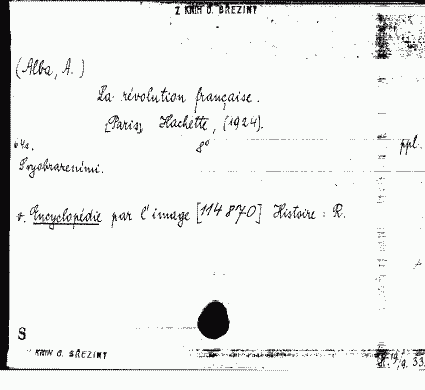 Z KNIH O. BŘEZINY
(Alba, A.)
La révolution française.
[Paris], Hachette, (1924).
64s. 8° ppl.
S vyobrazeními.
v. Encyclopédie par l'image [114870] Histoire : R.
S
KNIH O. BŘEZINY